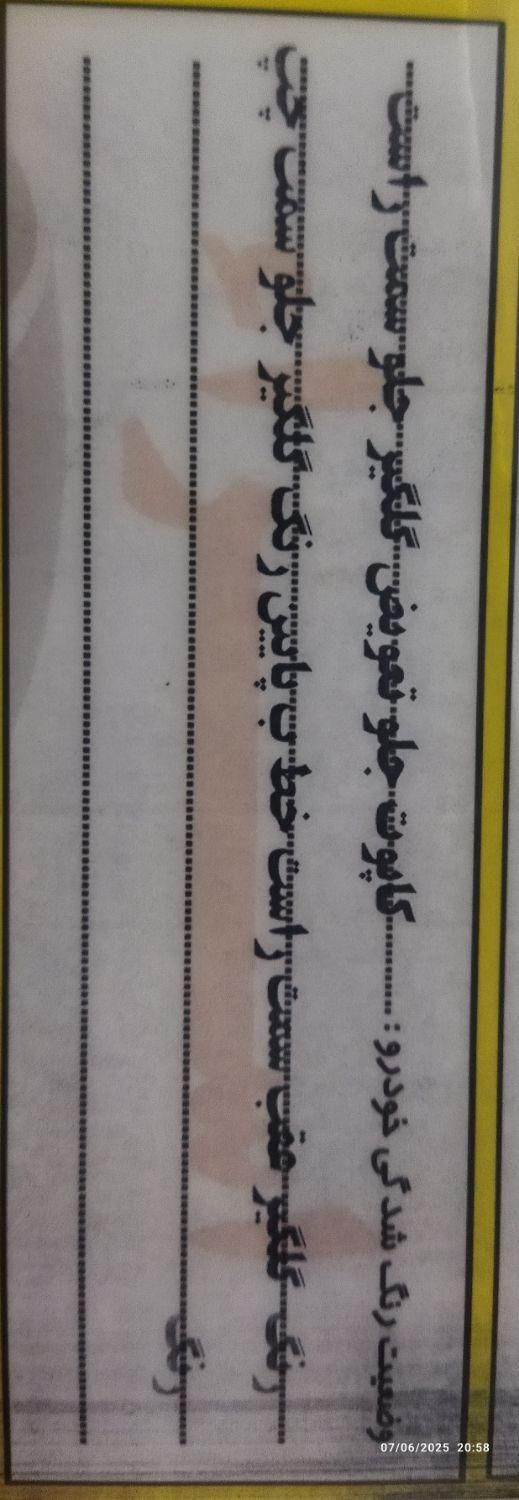 وضعیت رنگ شدگی خودرو : کاپوت جلو تعویض گلگیر جلو سمت راست
رنگ گلگیر عقب سمت راست خط ب پایین رنگ گلگیر جلو سمت چپ
رنگ
07/06/2025 20:58